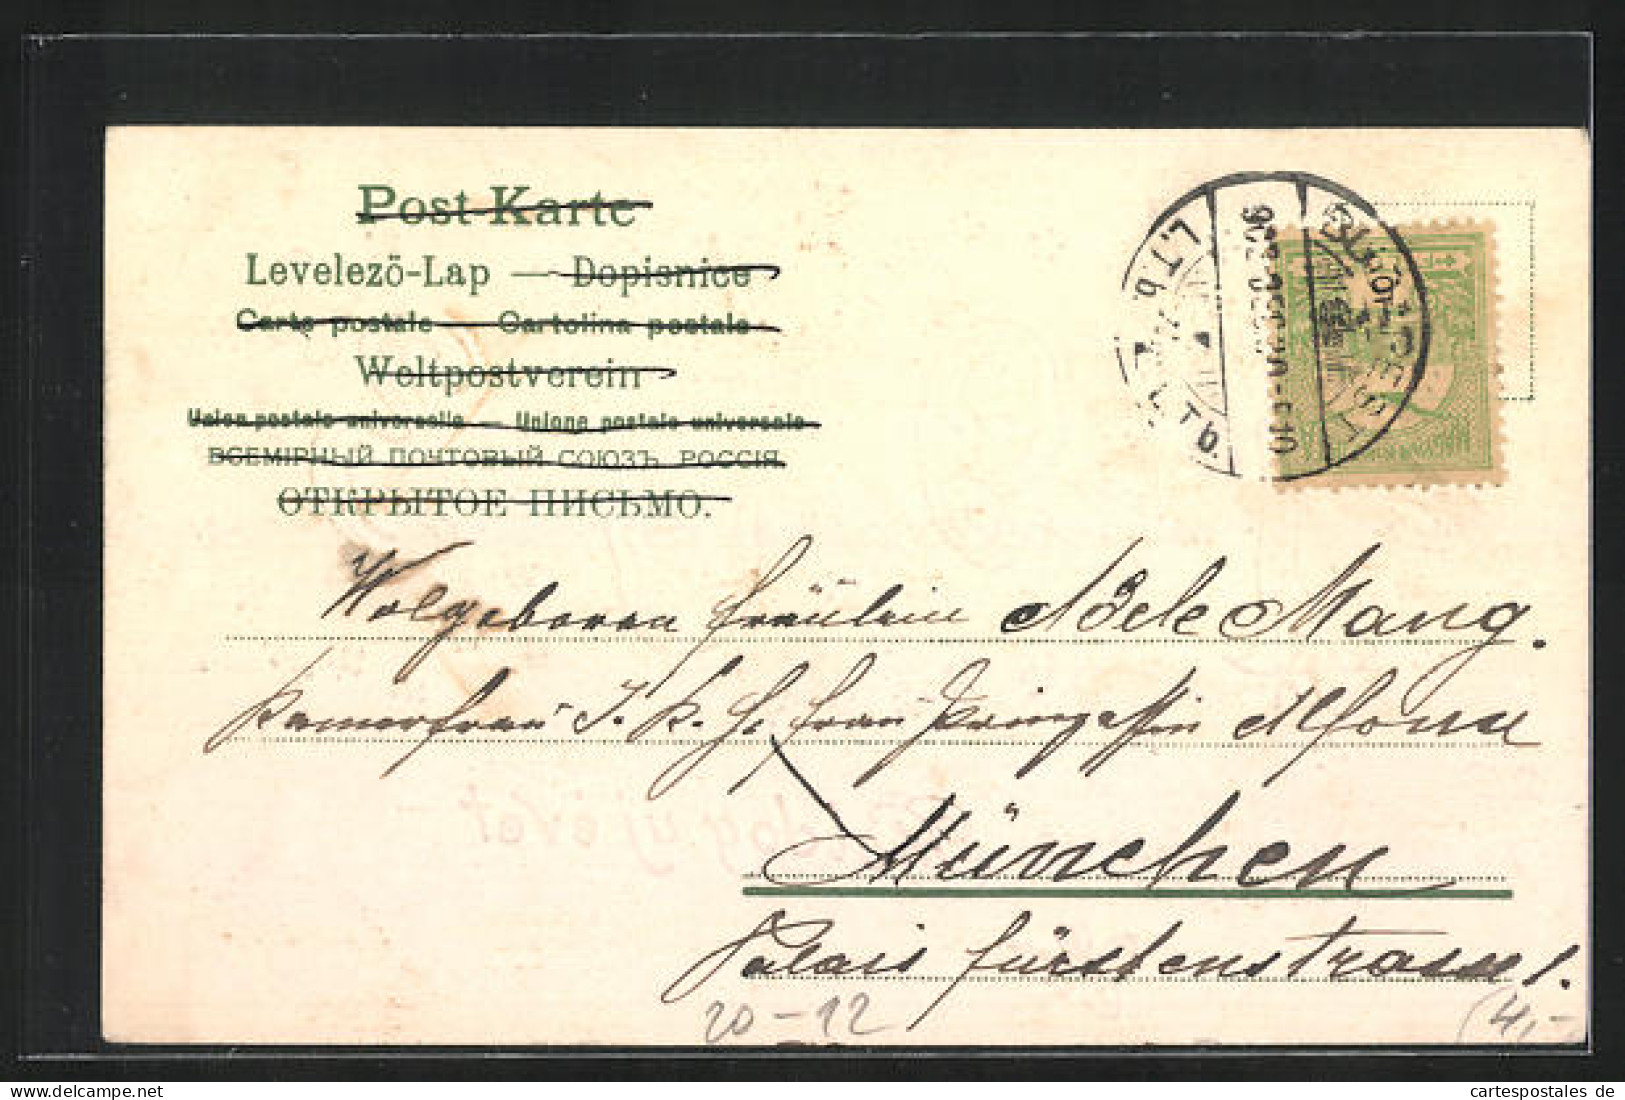 Post Karte
Levelező-Lap — Dopisnice
Carte postale — Cartolina postale
Weltpostverein
Union postale universelle — Unione postale universale
ВСЕМІРНЫЙ ПОЧТОВЫЙ СОЮЗЪ РОССІЯ.
ОТКРЫТОЕ ПИСЬМО.
BUDAPEST
Wolgeboren Fräulein Adele Mang.
Kamerfrau I. K. H. Frau Prinzessin Alfons
München
Palais Fürstenstrasse 1.
20-12
(4,-
cartespostales de